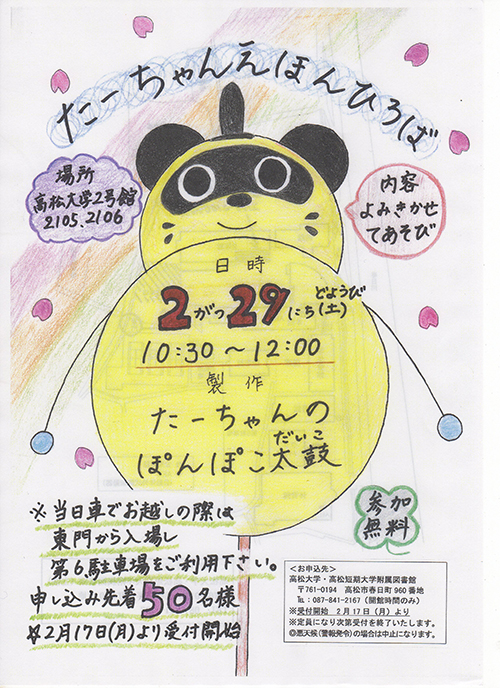 たーちゃんえほんひろば
場所
高松大学2号館
2105.2106
内容
よみきかせ
てあそび
日時
2がつ29にち(土)
どようび
10:30～12:00
製作
たーちゃんの
ぽんぽこ太鼓
だいこ
※当日車でお越しの際は
東門から入場し
第6駐車場をご利用下さい。
申し込み先着50名様
※2月17日(月)より受付開始
参加
無料
＜お申込先＞
高松大学・高松短期大学附属図書館
〒761-0194 高松市春日町960番地
TEL：087-841-2167（開館時間のみ）
※受付開始 2月17日（月）より
※定員になり次第受付を終了いたします。
◎悪天候（警報発令）の場合は中止になります。